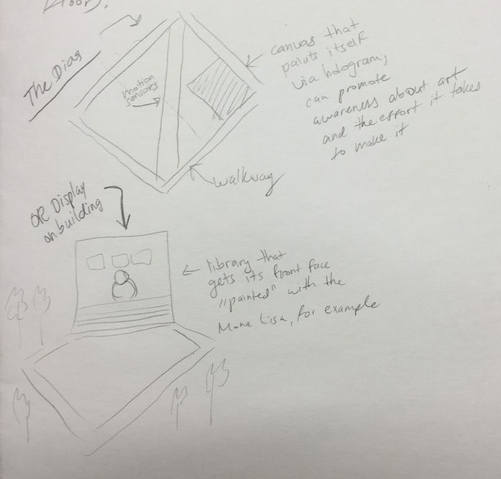 The Diag
motion
sensors
canvas that
paints itself
via hologram,
can promote
awareness about art
and the effort it takes
to make it
walkway
OR Display
on building
library that
gets its front face
"painted" with the
Mona Lisa, for example